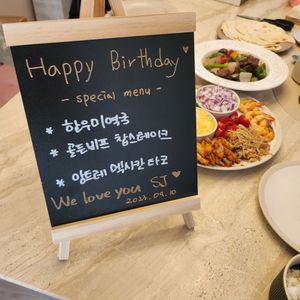 Happy Birthday ♡
- special menu -
* 한우미역국
* 골드비프 찹스테이크
* 앙트레 멕시칸 타코
We love you SJ ♥
2023. 09. 10